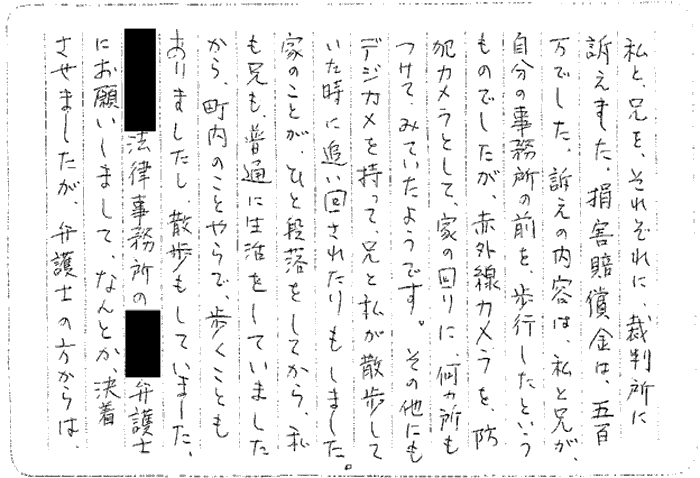 私と、兄を、それぞれに、裁判所に
訴えました。損害賠償金は、五百
万でした。訴えの内容は、私と兄が、
自分の事務所の前を、歩行したという
ものでしたが、赤外線カメラを、防
犯カメラとして、家の回りに何カ所も
つけて、みていたようです。その他にも
デジカメを持って、兄と私が散歩して
いた時に追い回されたりもしました。
家のことが、ひと段落をしてから、私
も兄も、普通に生活をしていました
から、町内のことやらで、歩くことも
ありましたし、散歩もしていました、
法律事務所の 弁護士
にお願いしまして、なんとか、決着
させましたが、弁護士の方からは、